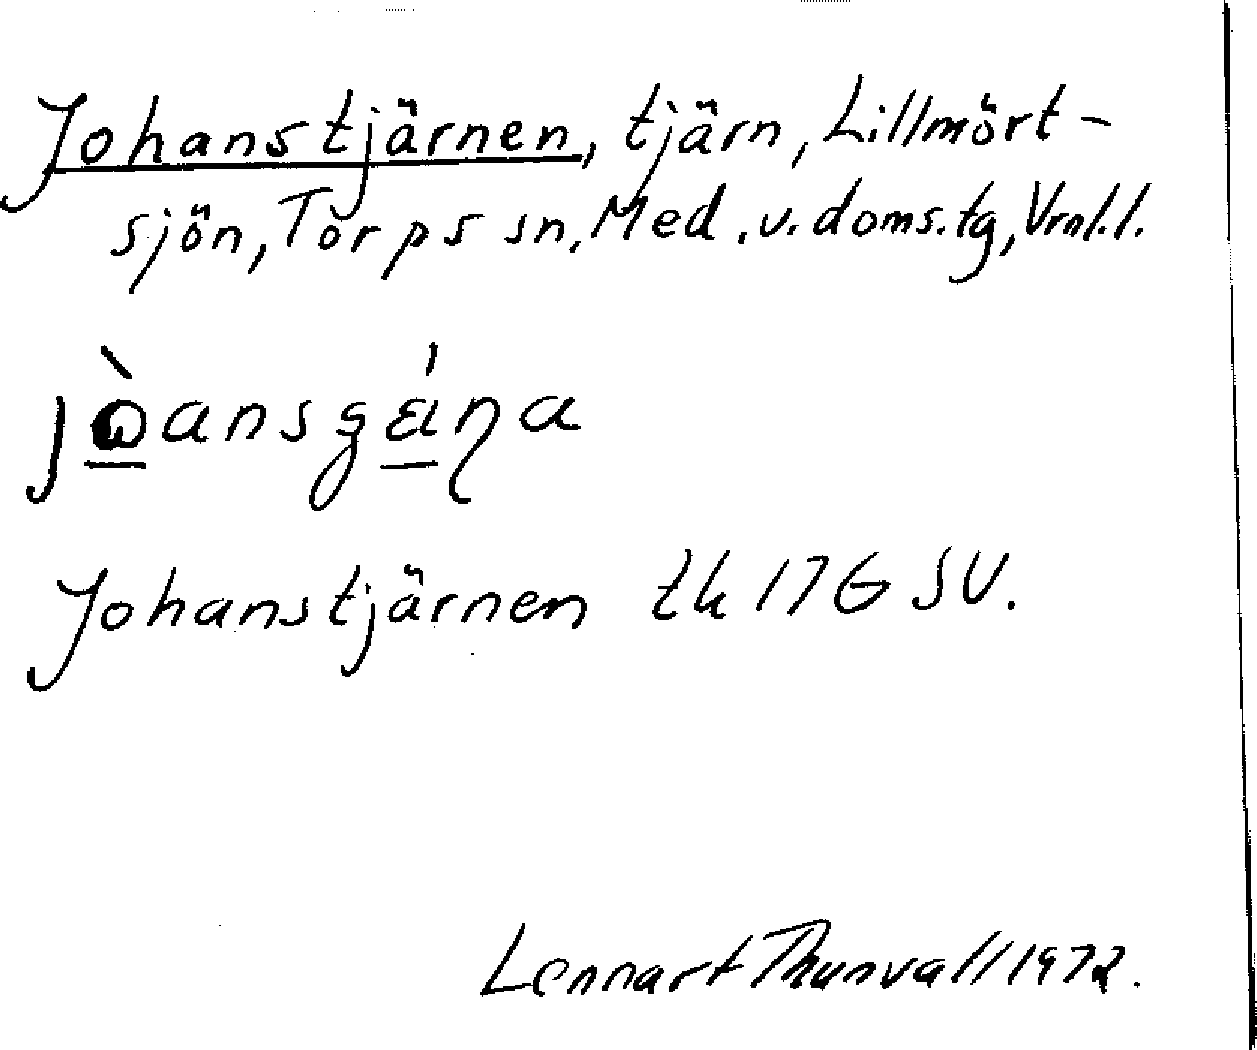 Johanstjärnen, tjärn, Lillmört-
sjön, Torps sn, Med. v. doms. tg, Vrnl. l.
Johanstjärnen tk 17G SV.
Lennart Thunvall 1972.